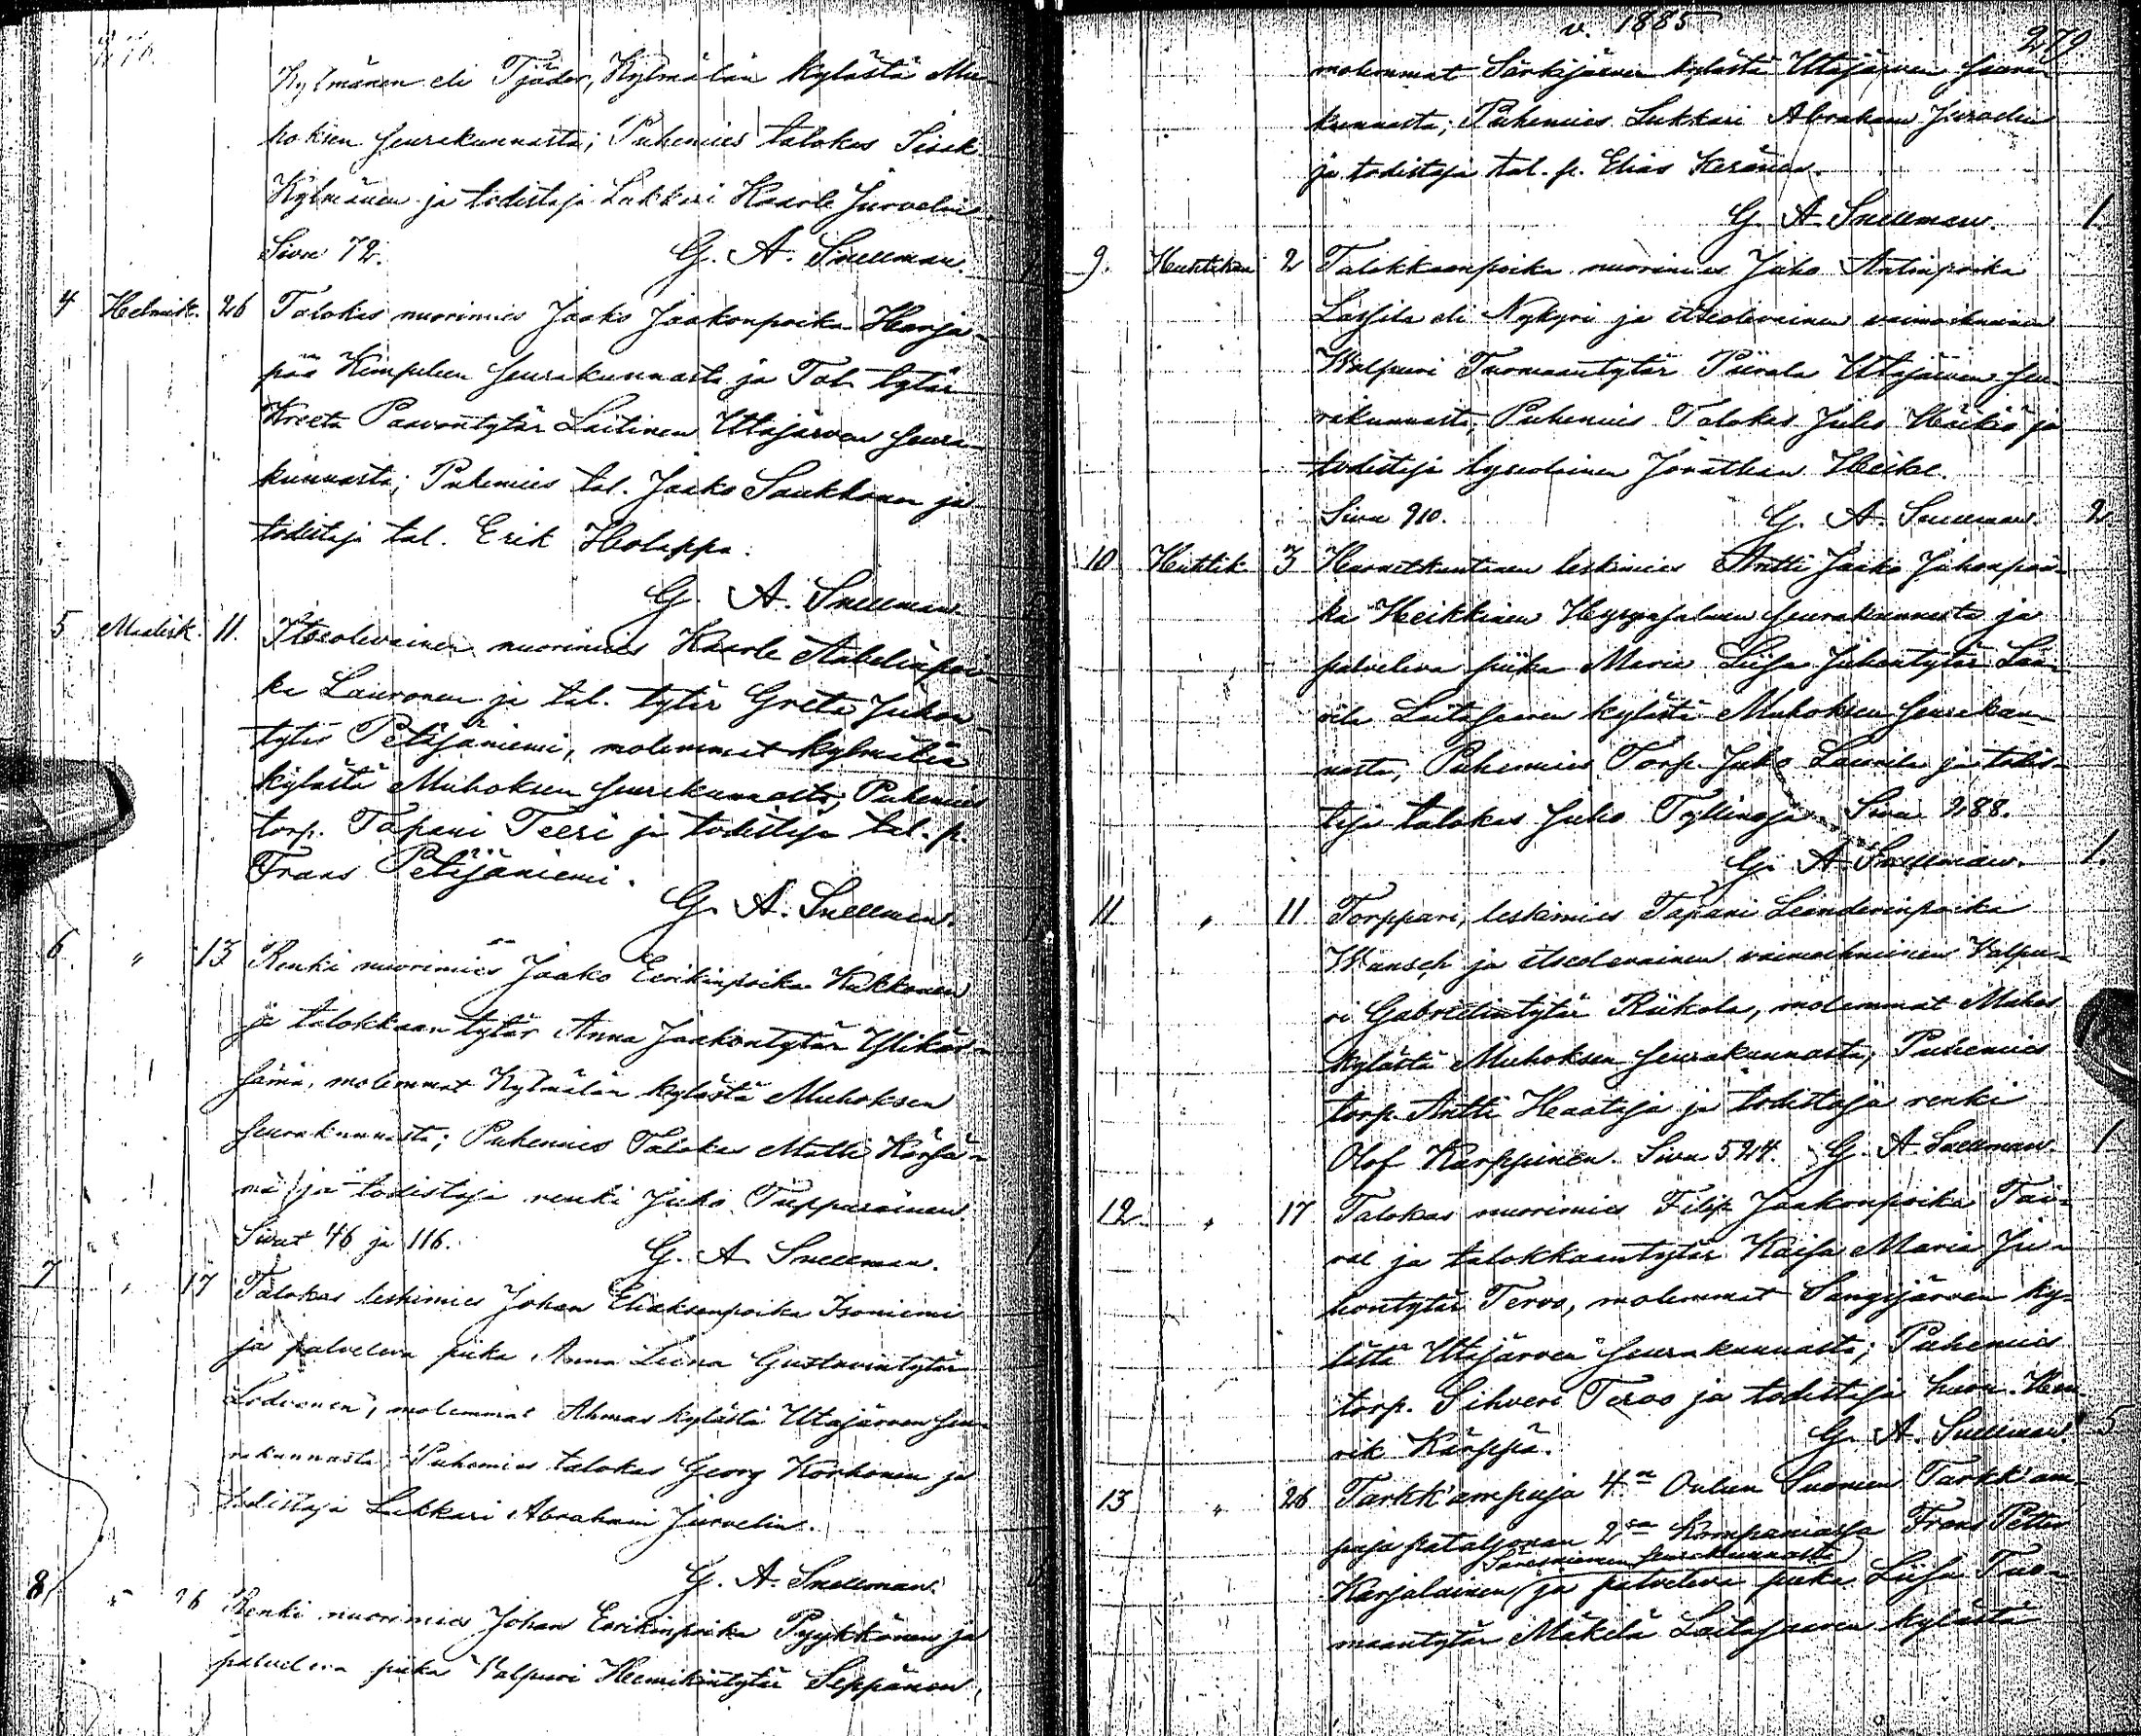 Kylmänen eli Tjäder, Kylmälän kylästä Mu-
hoksen seurakunnasta; Puhemies talokas Iisak
Kylmänen ja todistaja Lukkari Kaarle Jurvelin.
Sivu 72. G. A. Snellman. 1
4 Helmik. 26 Talokas nuorimies Jaako Jaakonpoika Harja-
pää Kempeleen seurakunnasta ja Tal. tytär
Kreeta Paavontytär Laitinen Utajärven seura-
kunnasta; Puhemies tal. Jaako Saukkonen ja
todistaja tal. Erik Holappa.
G. A. Snellman.
5 Maalisk. 11. Itseolevainen nuorimies Kaarle Aabelinpoi-
ka Lauronen ja tal. tytär Greta Juhon-
tytär Petäjäniemi, molemmat Kylmälän
kylästä Muhoksen seurakunnasta; Puhemies
torp. Tapani Teeri ja todistaja tal. p.
Frans Petäjäniemi.
G. A. Snellman.
6 " 13 Renki nuorimies Jaako Eerikinpoika Kukkonen
ja talokkaan tytär Anna Jaakontytär Ylikör-
sämä, molemmat Kylmälän kylästä Muhoksen
seurakunnasta; Puhemies Talokas Matti Körsä-
mä ja todistaja renki Juho Tupparainen.
Sivut 46 ja 116. G. A. Snellman. 1
7 " 17 Talokas leskimies Johan Eliaksenpoika Isoniemi
ja palveleva piika Anna Leena Gustavintytär
molemmat Ahmas kylästä Utajärven seu-
rakunnasta; Puhemies talokas Georg Korhonen ja
todistaja Lukkari Abraham Jurvelin.
G. A. Snellman.
8 " 26 Renki nuorimies Johan Eerikinpoika Pyykkönen ja
palveleva piika Valpuri Heinrikintytär Seppänen,
v. 1885 279
molemmat Särkijärven kylästä Utajärven seura-
kunnasta; Puhemies Lukkari Abraham Jurvelin
ja todistaja tal. p. Elias Keränen.
G. A. Snellman. 1.
9. Huhtikuu 2 Talokkaanpoika nuorimies Juho Antinpoika
Lassila eli Nykyri ja itseolevainen vaimoihminen
Walpuri Tuomaantytär Piirala Utajärven seu-
rakunnasta; Puhemies Talokas Juho Häikiö ja
todistaja lyseolainen Jonathan Heikel.
Sivu 910. G. A. Snellman. 2
10 Huhtik. 3 Huonetkuntainen leskimies Antti Jaako Juhonpoi-
ka Heikkinen Hyrynsalmen seurakunnasta ja
palveleva piika Maria Liisa Juhontytär Lau-
rila Laitasaaren kylästä Muhoksen seurakun-
nasta; Puhemies Torp. Juho Laurila ja todis-
taja talokas Juho Tyllinoja Sivu 288.
G. A. Snellman. 1.
11 " 11 Torppari, leskimies Tapani Leanderinpoika
Wänsch ja itseolevainen vaimoihminen Valpu-
ri Gabrielintytär Riikola, molemmat Muhos
kylästä Muhoksen seurakunnasta; Puhemies
torp. Antti Haataja ja todistaja renki
Olof Karppinen. Sivu 524. G. A. Snellman. 1
12 " 17 Talokas nuorimies Filip Jaakonpoika Toi-
val ja talokkaantytär Kaisa Maria Ju-
hontytär Tervo, molemmat Sangijärven ky-
lästä Utajärven seurakunnasta; Puhemies
torp. Sihveri Tervo ja todistaja huon. Hen-
rik Kärppä. G. A. Snellman. 5
13 " 26 Tarkk'ampuja 4:n Oulun Suomen Tarkk'am-
puja pataljonan 2:sa Komppaniassa Frans Petter
Säresniemen seurakunnasta
Karjalainen (ja palveleva piika Liisa Tuo-
maantytär Mäkelä Laitasaaren kylästä